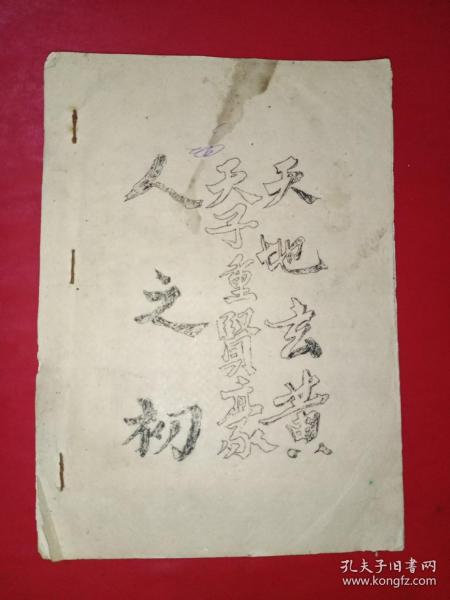 天地玄黄
天子重賢豪
人之初
孔夫子旧书网
www.kongfz.com